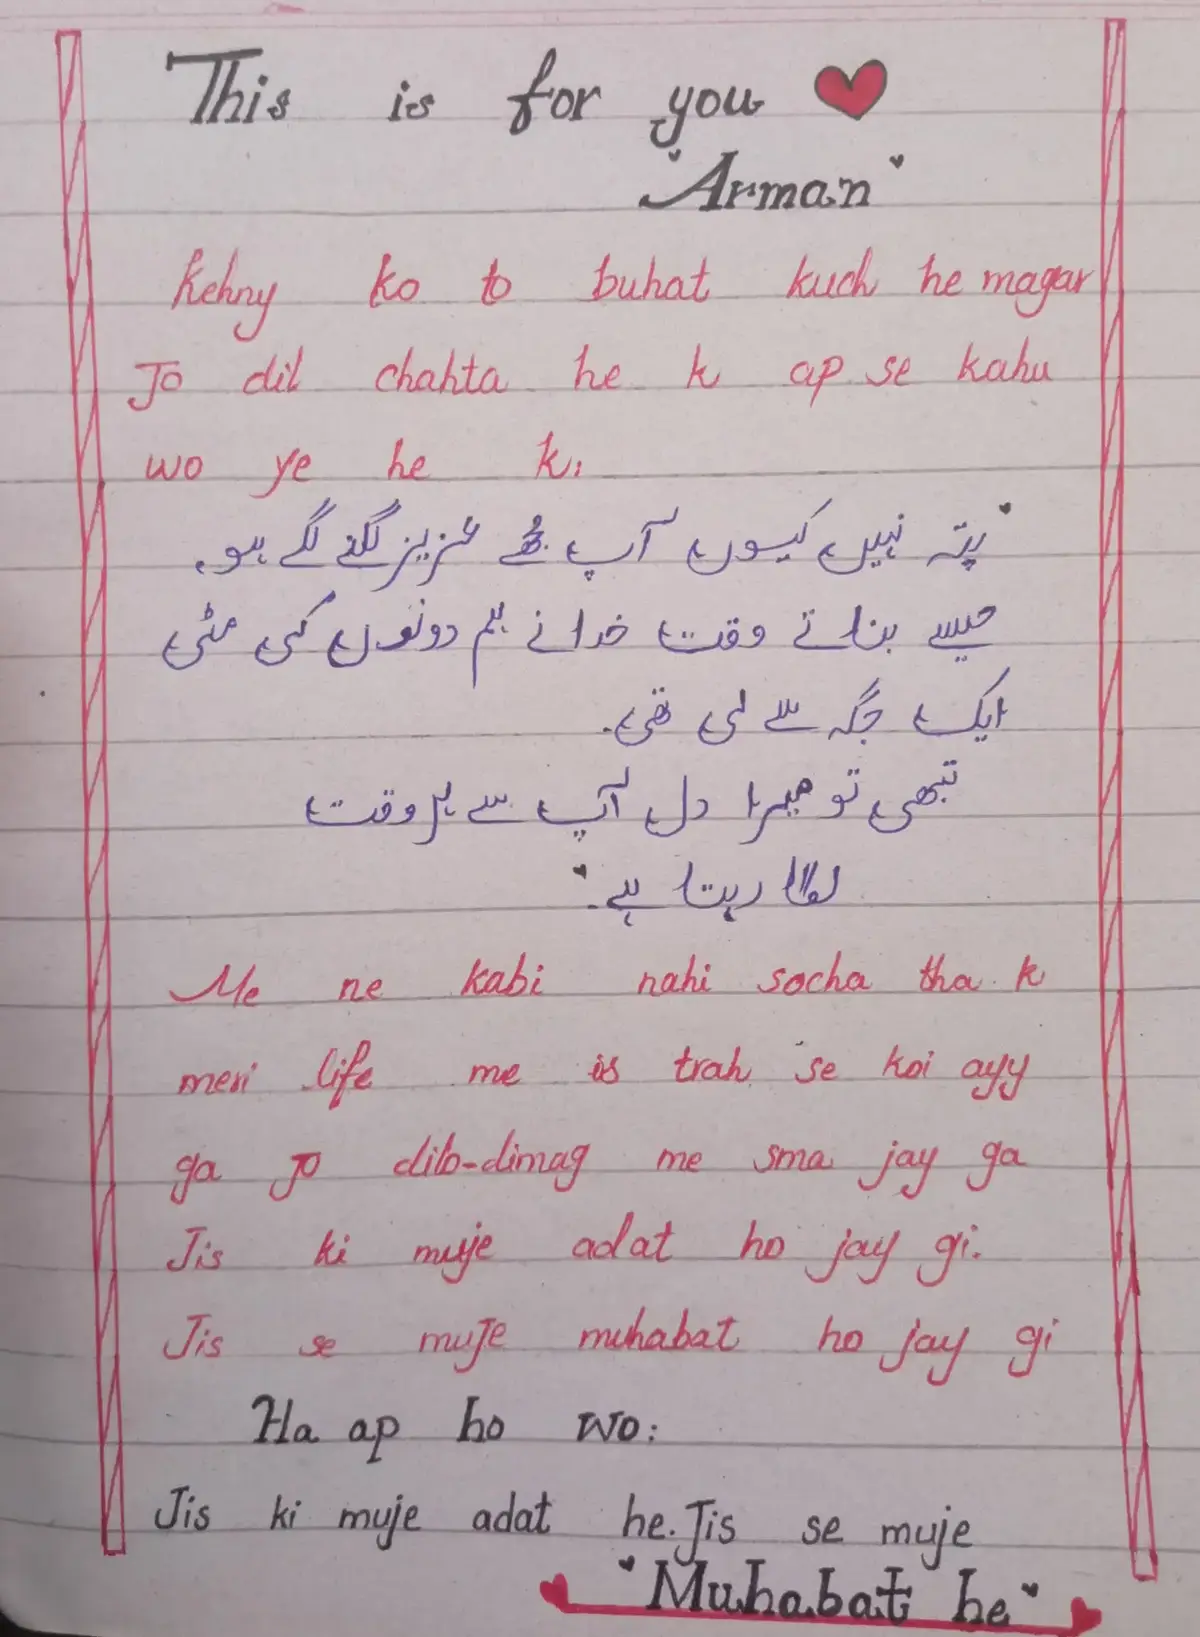 This is for you
"Arman"
Kehny ko to buhat kuch he magar
Jo dil chahta he k ap se kahu
wo ye he k:
پتہ نہیں کیوں آپ مجھے عزیز لگنے لگے ہو۔
جیسے بناتے وقت خدا نے ہم دونوں کی مٹی
ایک جگہ سے لی تھی۔
تبھی تو میرا دل آپ سے ہر وقت
لگا رہتا ہے۔
Me ne kabi nahi socha tha k
meri life me is trah se koi ayy
ga Jo dilo-dimag me sma jay ga
Jis ki muje adat ho jay gi.
Jis se muje muhabat ho jay gi
Ha ap ho wo:
Jis ki muje adat he. Jis se muje
"Muhabat he"